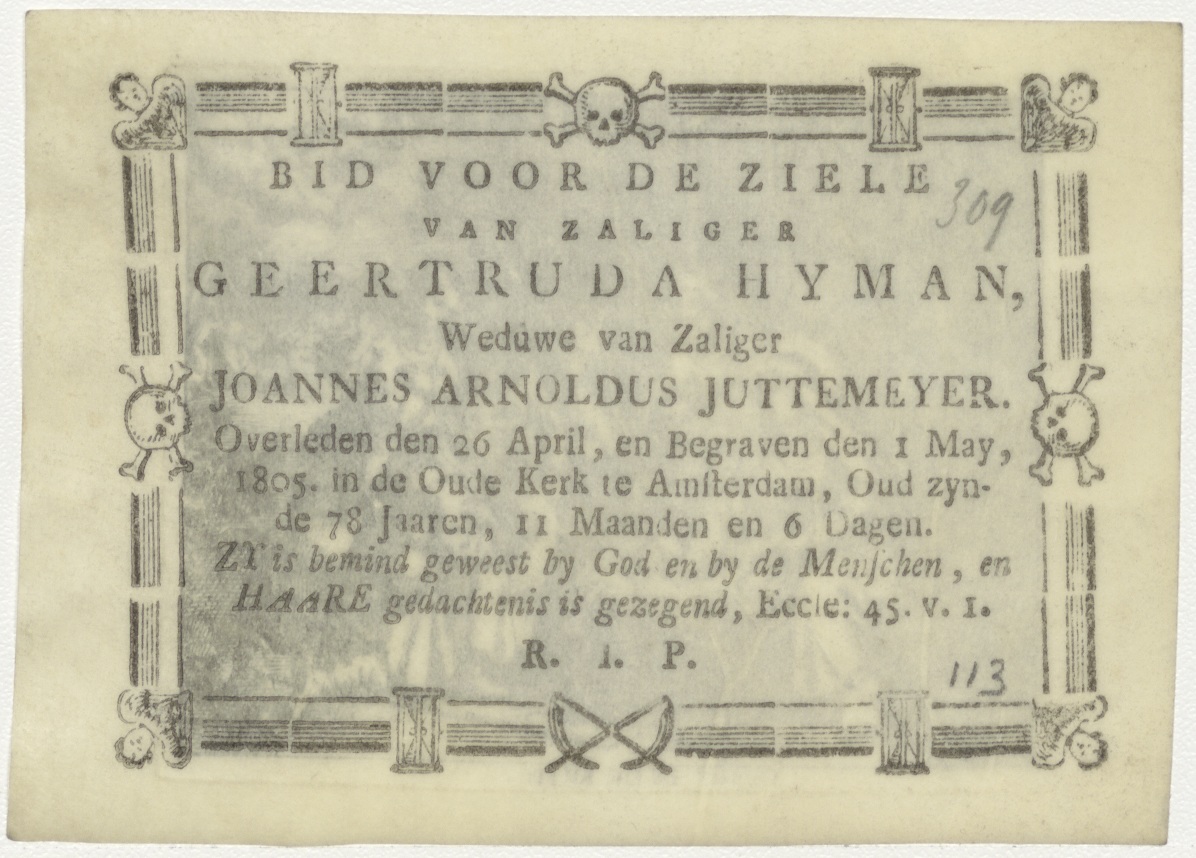 BID VOOR DE ZIELE
309
VAN ZALIGER
GEERTRUDA HYMAN,
Weduwe van Zaliger
JOANNES ARNOLDUS JUTTEMEYER.
Overleden den 26 April, en Begraven den 1 May,
1805. in de Oude Kerk te Amſterdam, Oud zyn-
de 78 Jaaren, 11 Maanden en 6 Dagen.
ZY is bemind geweest by God en by de Menſchen, en
HAARE gedachtenis is gezegend, Eccle: 45. v. 1.
R. I. P.
113